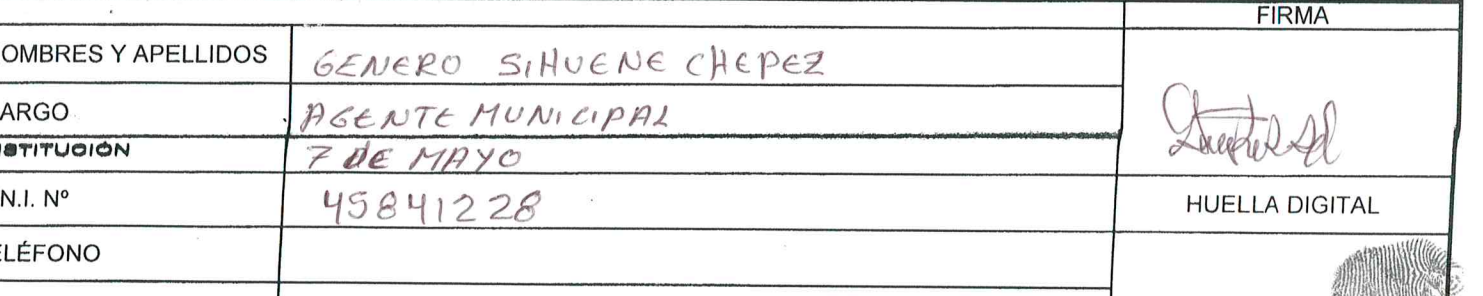 FIRMA
OMBRES Y APELLIDOS GENERO SIHUENE CHEPEZ
ARGO AGENTE MUNICIPAL
STITUCIÓN 7 DE MAYO
N.I. Nº 45841228 HUELLA DIGITAL
ELÉFONO